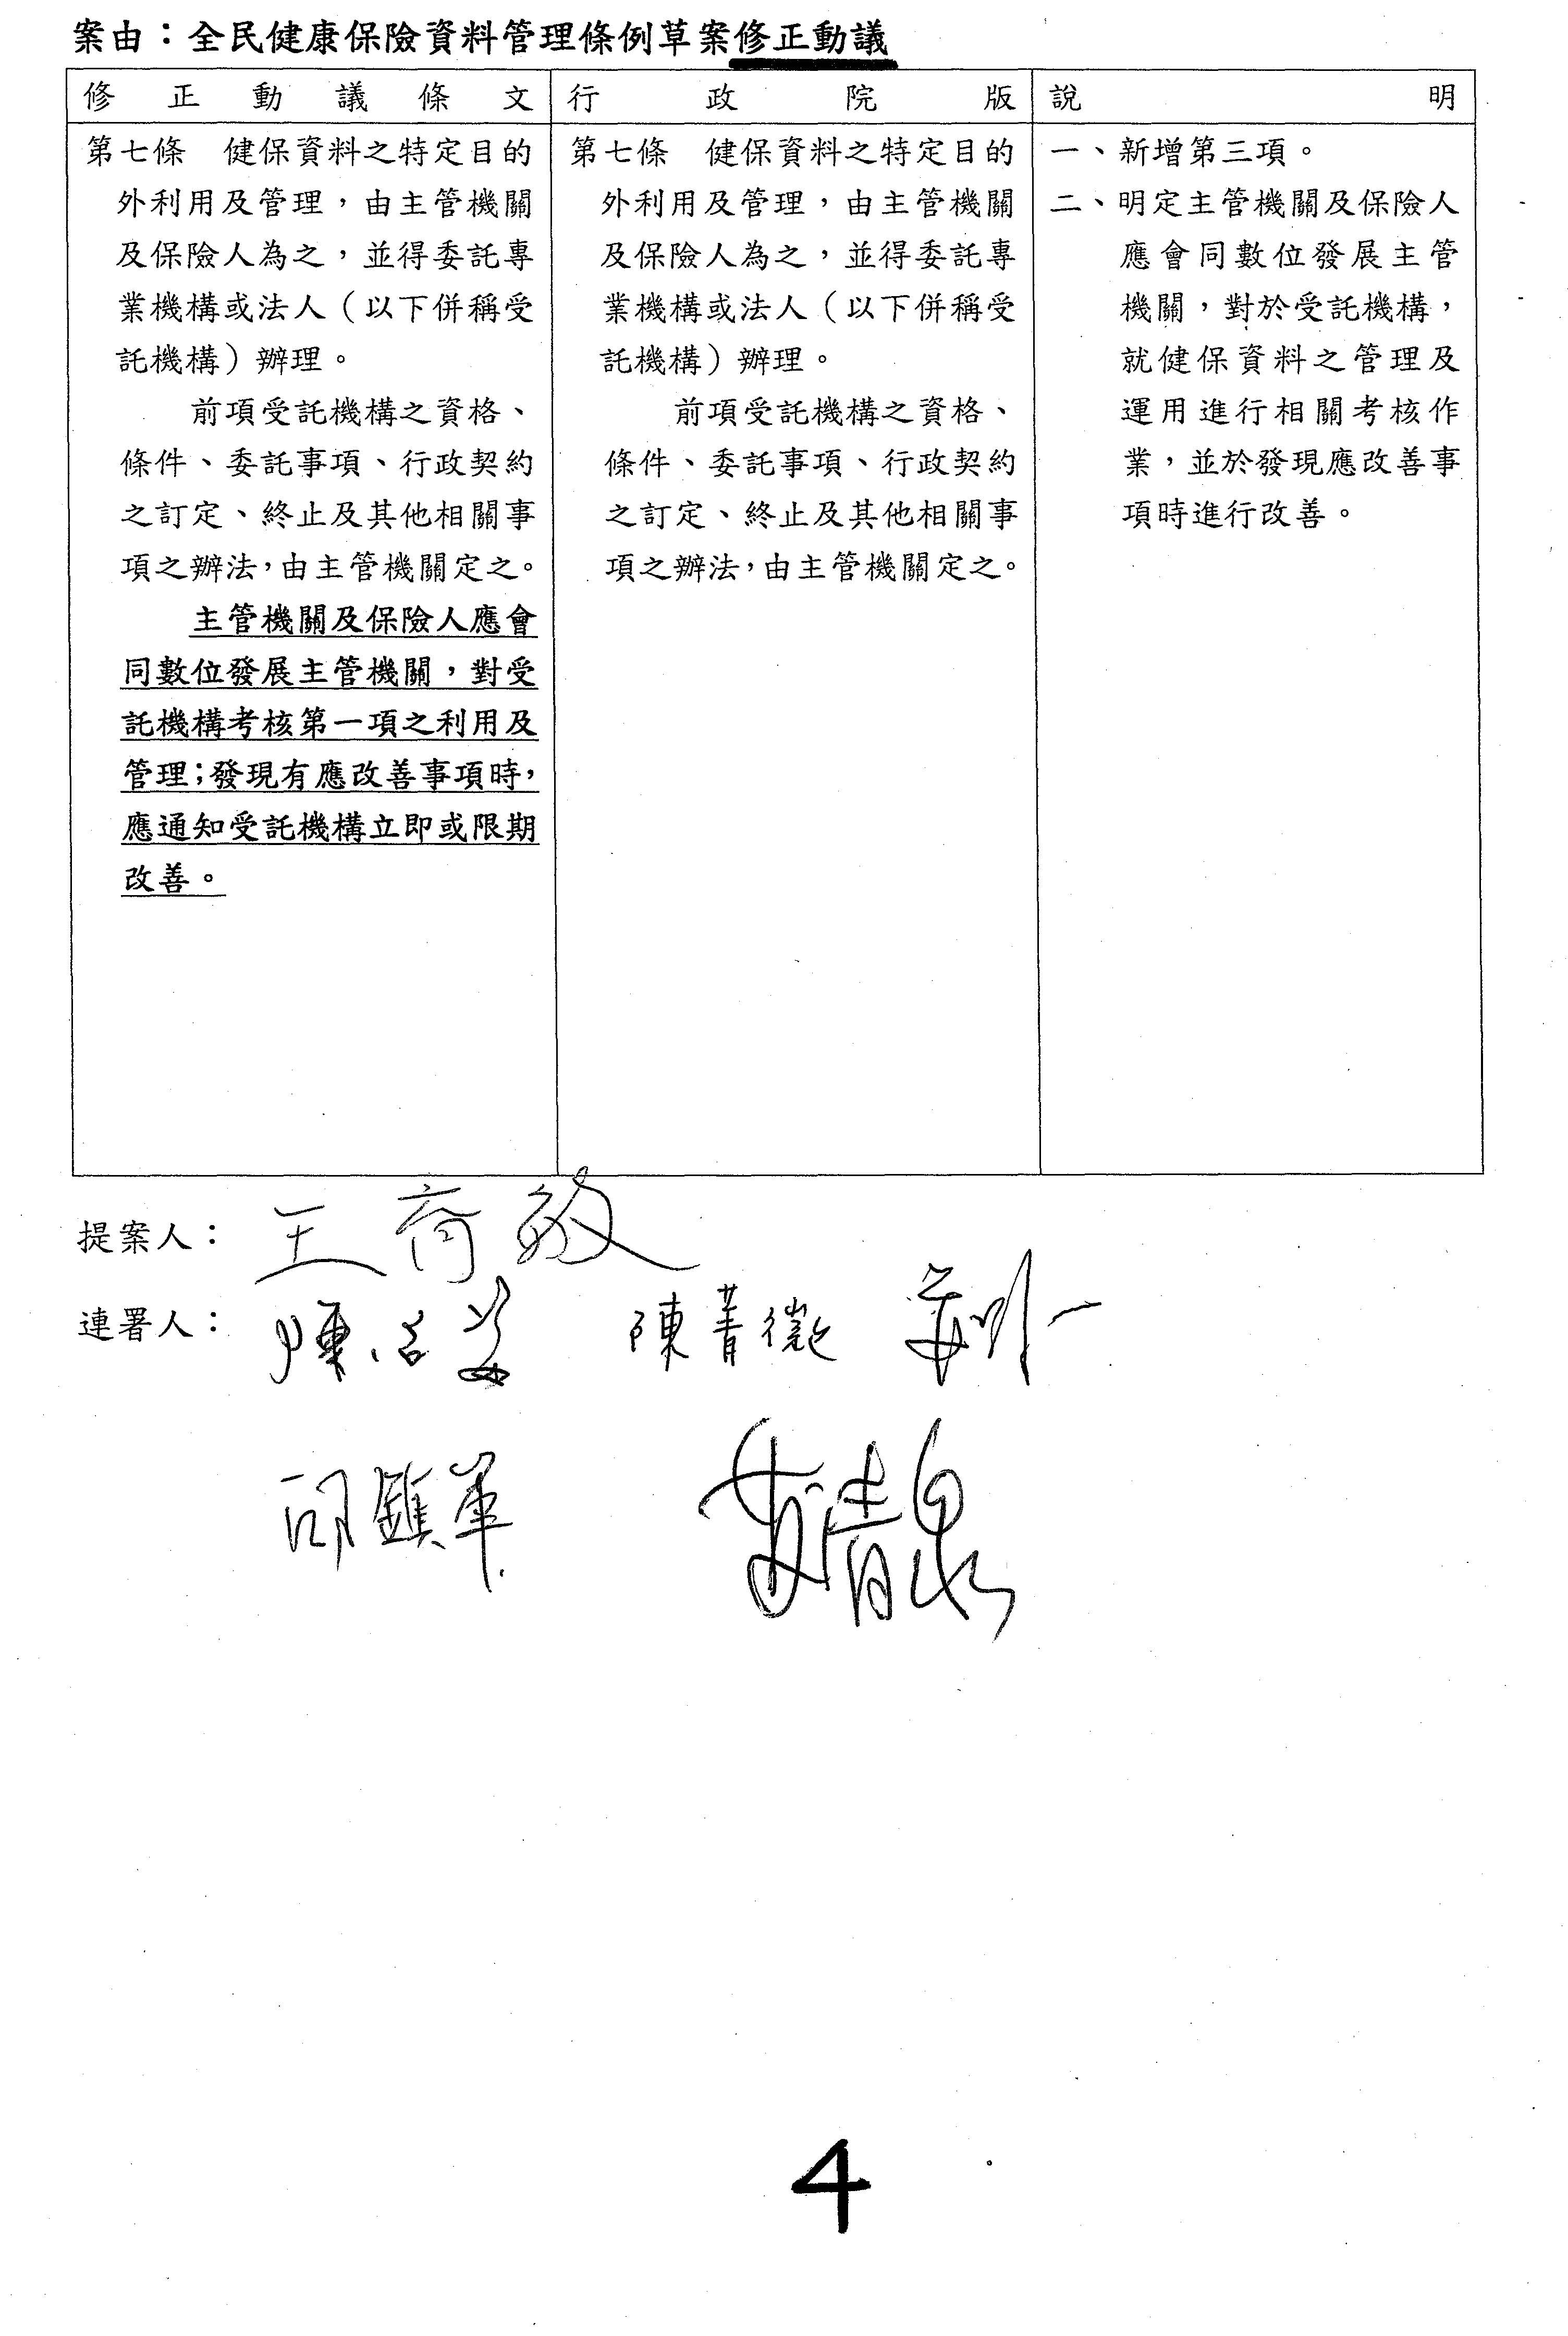 案由：全民健康保險資料管理條例草案修正動議
修正動議條文
第七條　健保資料之特定目的
外利用及管理，由主管機關
及保險人為之，並得委託專
業機構或法人（以下併稱受
託機構）辦理。
前項受託機構之資格、
條件、委託事項、行政契約
之訂定、終止及其他相關事
項之辦法，由主管機關定之。
主管機關及保險人應會
同數位發展主管機關，對受
託機構考核第一項之利用及
管理；發現有應改善事項時，
應通知受託機構立即或限期
改善。
行政院版
第七條　健保資料之特定目的
外利用及管理，由主管機關
及保險人為之，並得委託專
業機構或法人（以下併稱受
託機構）辦理。
前項受託機構之資格、
條件、委託事項、行政契約
之訂定、終止及其他相關事
項之辦法，由主管機關定之。
說明
一、新增第三項。
二、明定主管機關及保險人
應會同數位發展主管
機關，對於受託機構，
就健保資料之管理及
運用進行相關考核作
業，並於發現應改善事
項時進行改善。
提案人：
連署人：陳菁徽
邱鎮軍
4